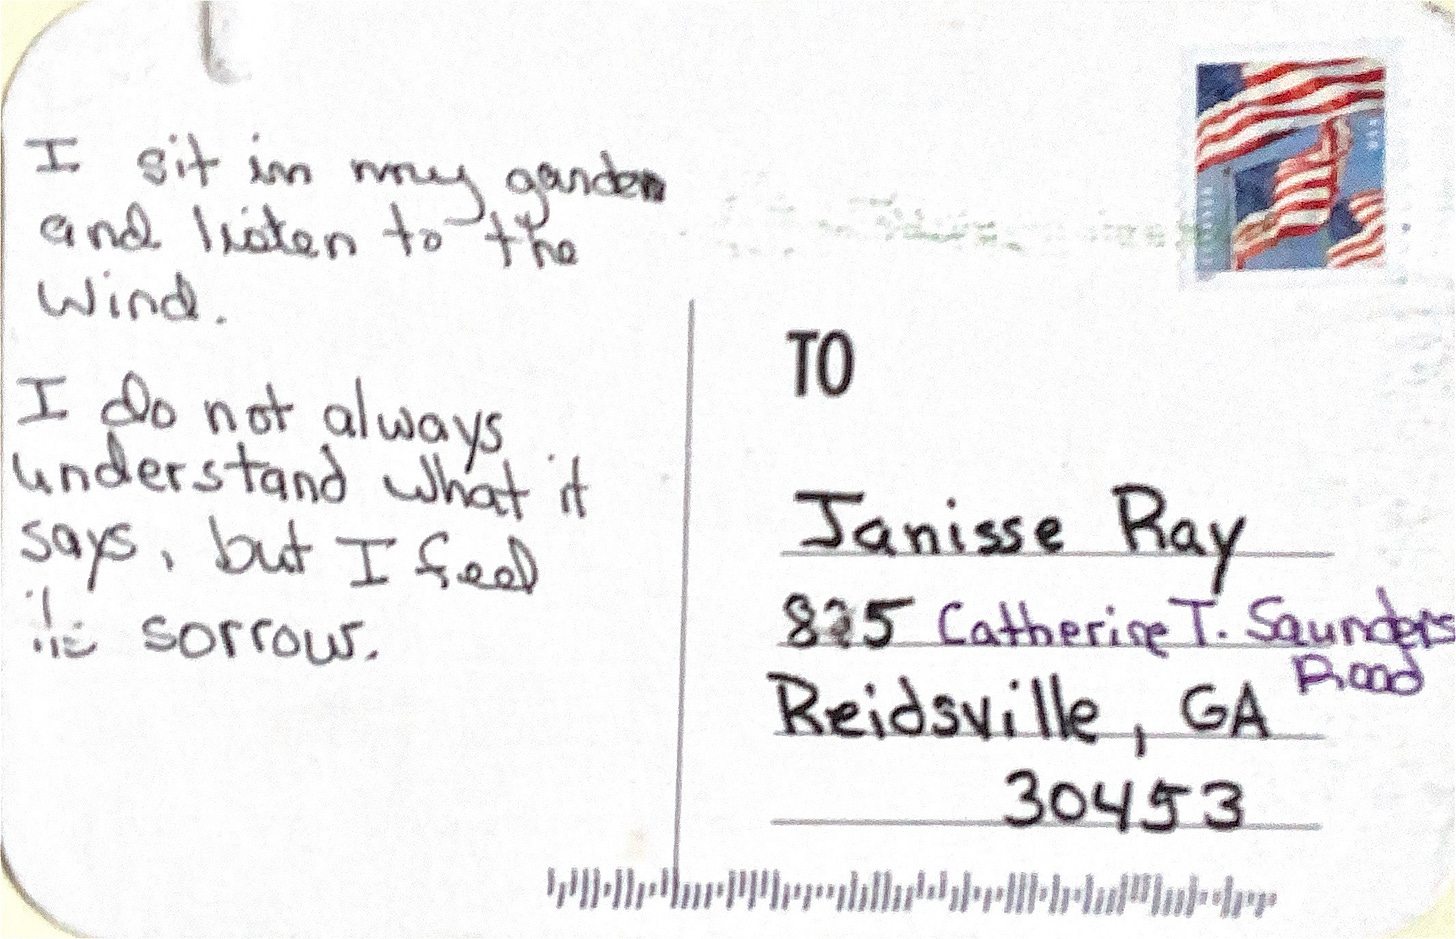 I sit in my garden
and listen to the
wind.
I do not always
understand what it
says, but I feel
sorrow.
TO
Janisse Ray
Catherine T. Saunders
Road
Reidsville, GA
30453